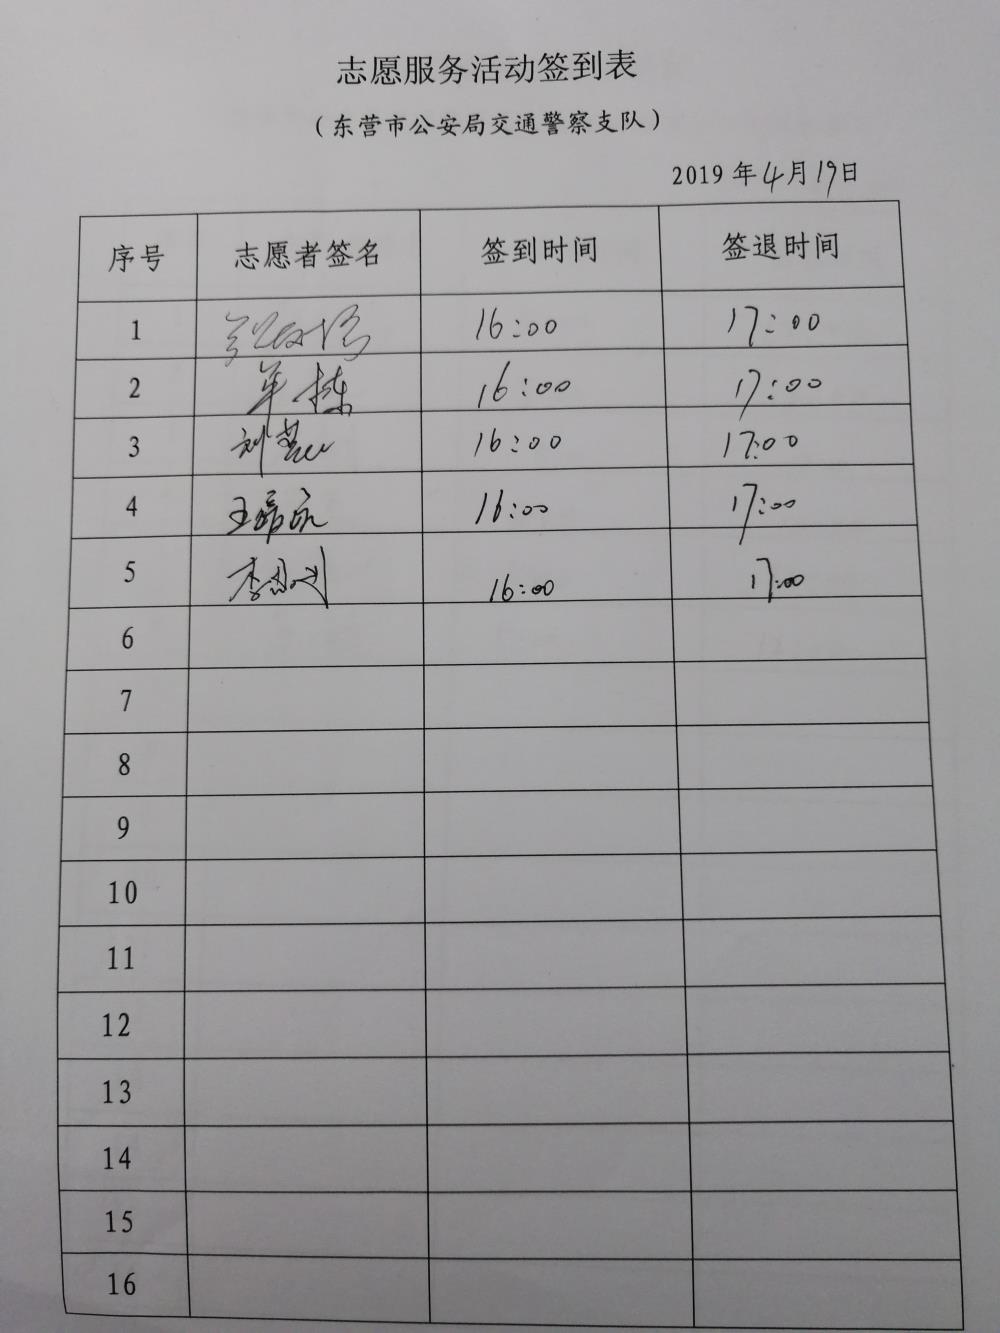 志愿服务活动签到表
（东营市公安局交通警察支队）
2019 年 4 月 19 日
序号 志愿者签名 签到时间 签退时间
1 16:00 17:00
2 单栋 16:00 17:00
3 刘 16:00 17:00
4 王 16:00 17:00
5 李 16:00 17:00
6
7
8
9
10
11
12
13
14
15
16